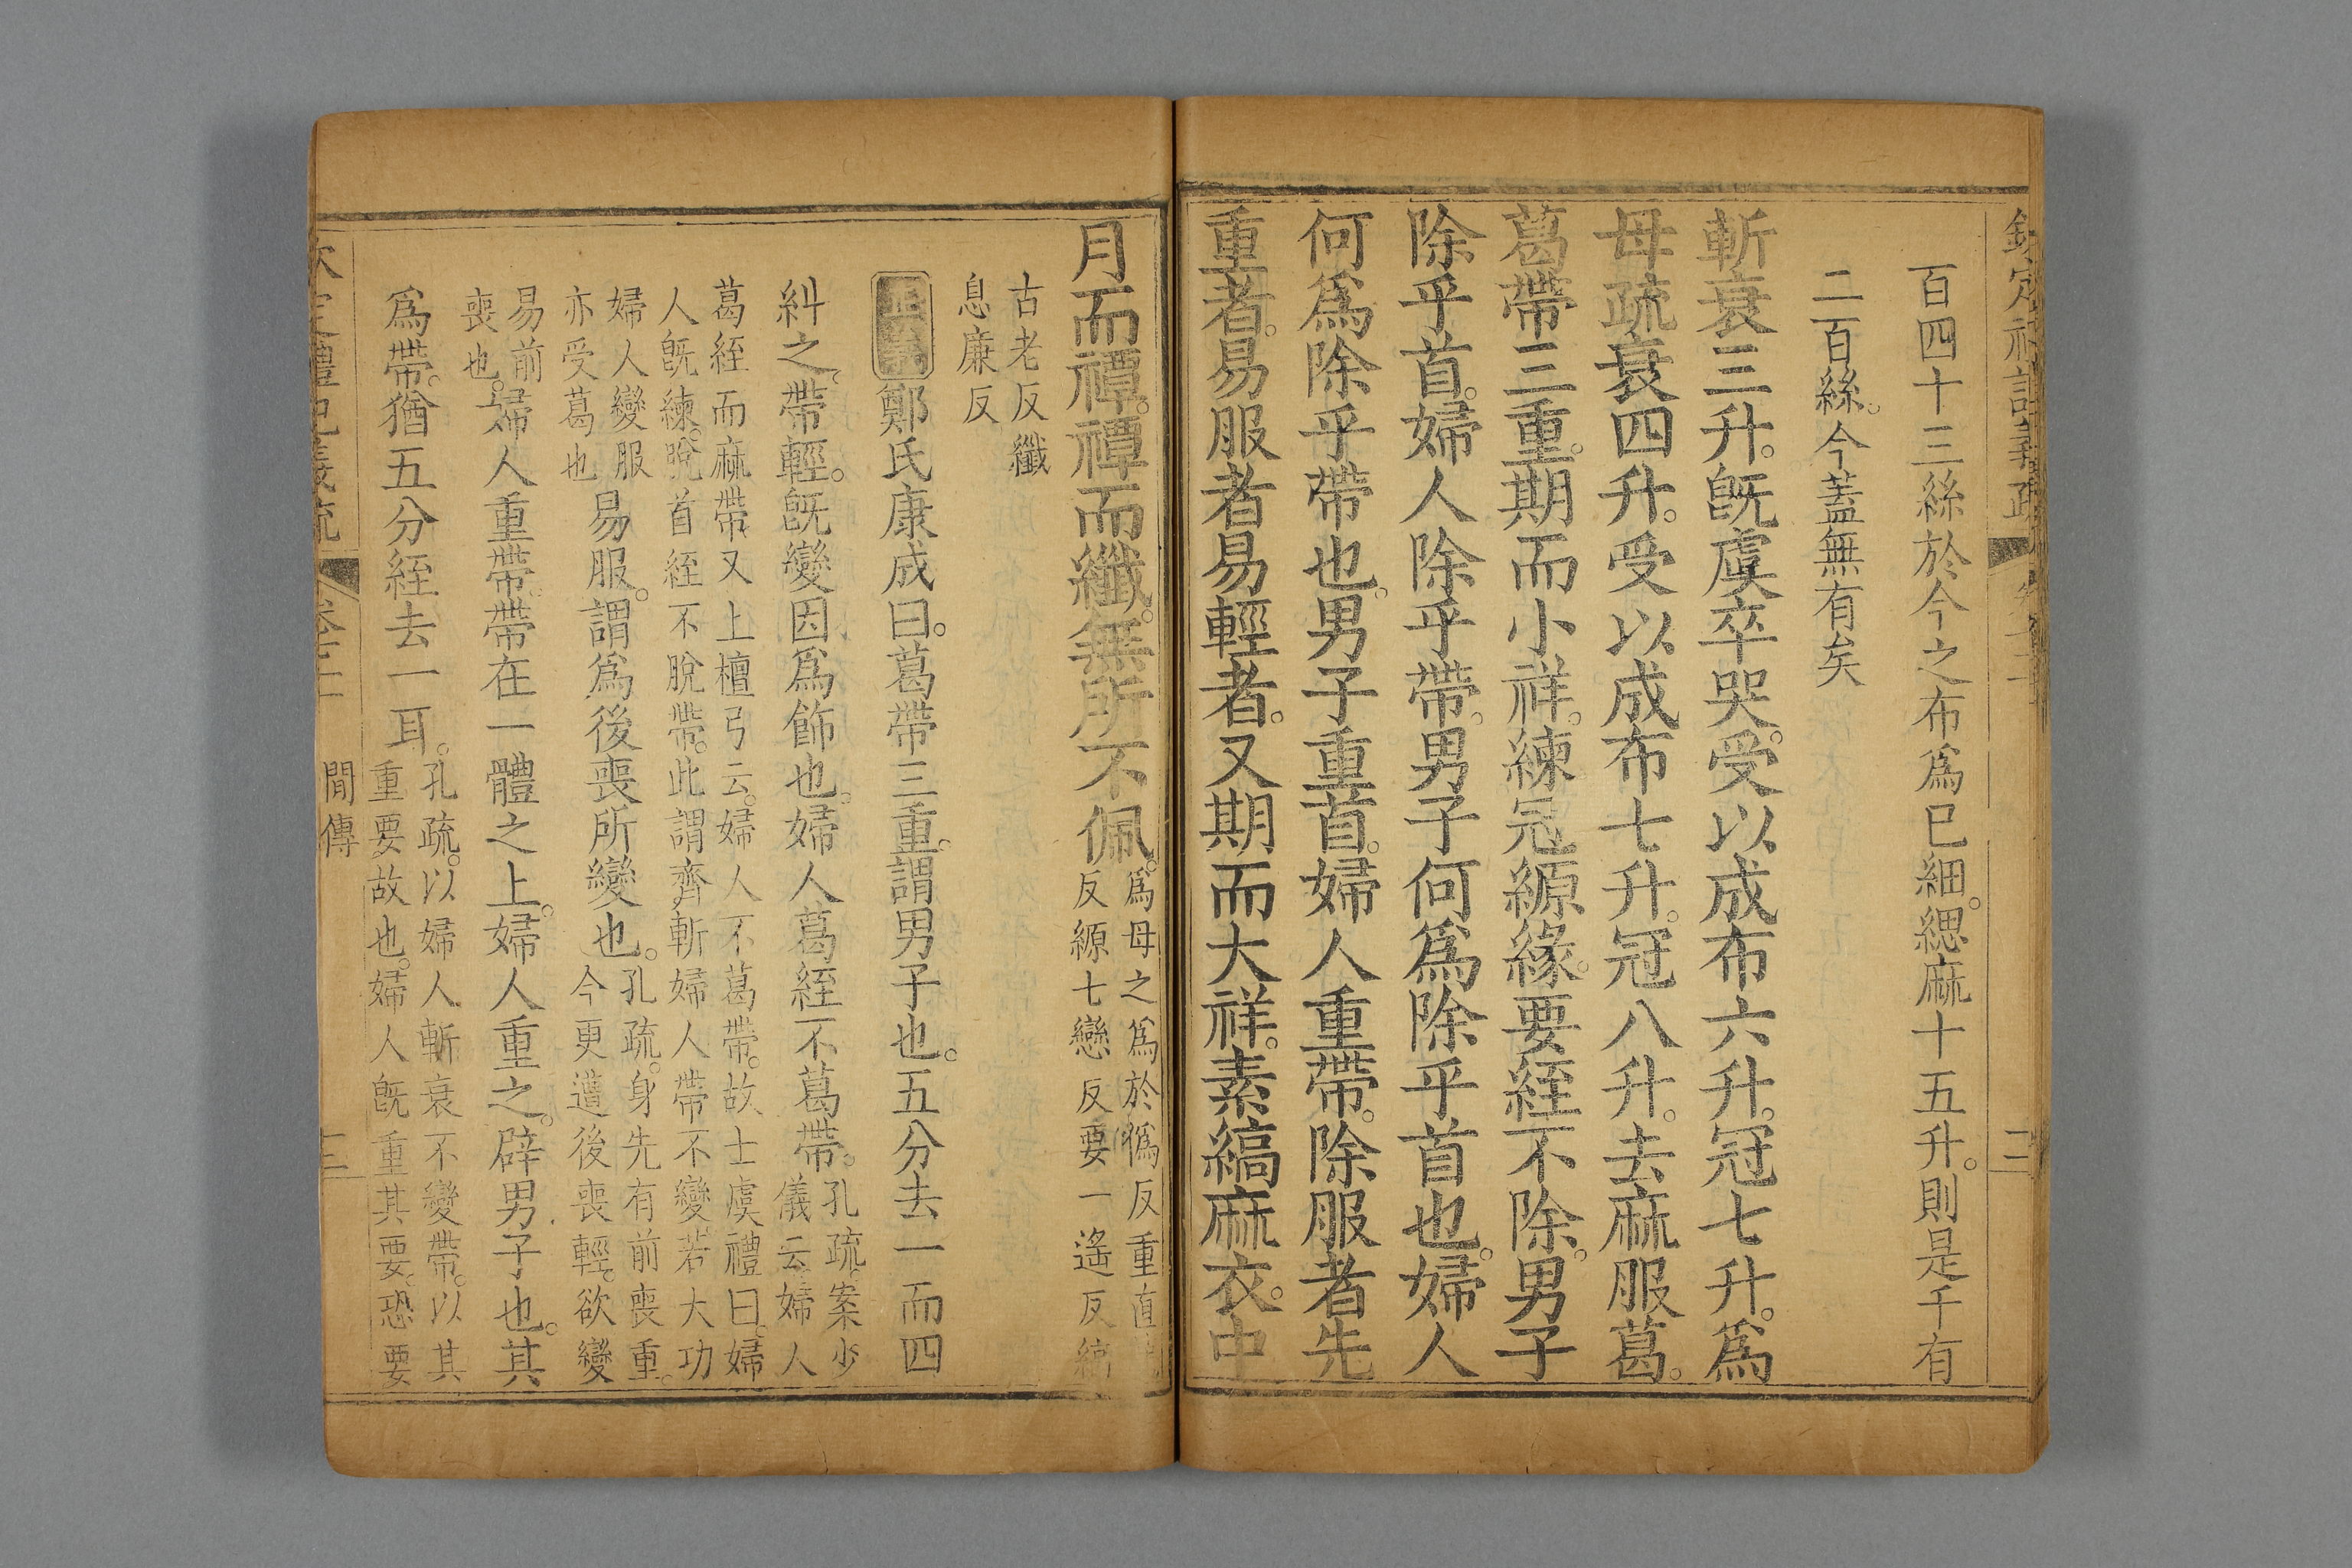 百四十三絲於今之布爲巳細。緦麻十五升。則是千有
二百絲。今蓋無有矣
斬衰三升。旣虞卒哭。受以成布六升。冠七升。爲
母疏衰四升。受以成布七升。冠八升。去麻服葛。
葛帶三重。期而小祥。練冠縓緣。要絰不除。男子
除乎首。婦人除乎帶。男子何爲除乎首也。婦人
何爲除乎帶也。男子重首。婦人重帶。除服者先
重者。易服者易輕者。又期而大祥。素縞麻衣。中
月而禫。禫而纖。無所不佩。爲母之爲於僞反重直
反縓七戀反要一遙反縞
古老反纖
息廉反
正義鄭氏康成曰。葛帶三重。謂男子也。五分去一而四
糾之。帶輕。旣變因爲飾也。婦人葛絰不葛帶。孔疏。案少
儀云婦人
葛絰而麻帶又上檀弓云。婦人不葛帶。故士虞禮曰。婦
人旣練。脫首絰不脫帶。此謂齊斬婦人帶不變若大功
婦人變服
亦受葛也
易服。謂爲後喪所變也。孔疏。身先有前喪重。
今更遭後喪輕。欲變
易前
喪也。
婦人重帶。帶在一體之上。婦人重之。辟男子也。其
爲帶。猶五分絰去一耳。孔疏。以婦人斬衰不變帶。以其
重要故也。婦人旣重其要。恐要
閒傳